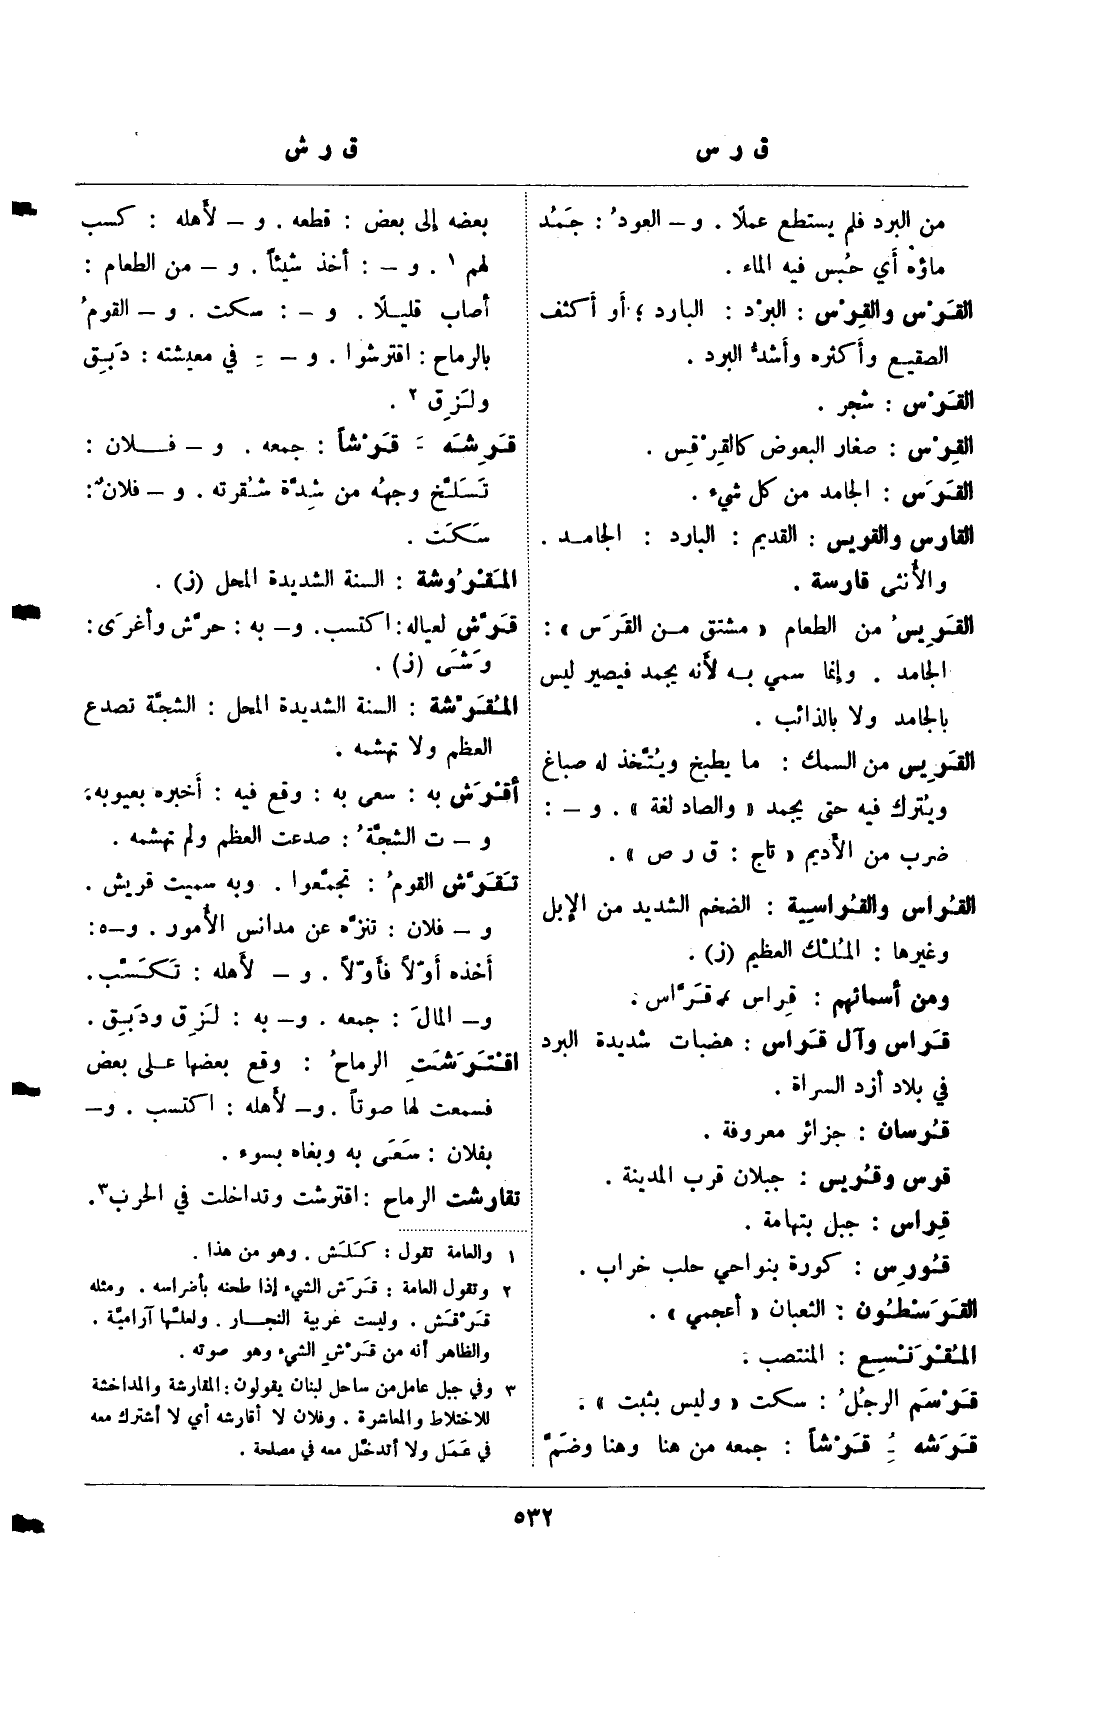 ق ر س
ق ر ش
من البرد فلم يستطع عملًا . و – العودُ : جَمَدُ
ماؤهُ أي حُبس فيه الماء .
القَرْس والقِرْس : البرْد : البارد ؛ أو أكثف
الصقيع وأكثره وأشدُّ البرد .
القَرْس : شجر .
القِرْس : صغار البعوض كالقِرْقِس .
القَرَس : الجامد من كل شيء .
القارس والقريس : القديم : البارد : الجامد .
والأُنثى قارسة .
القَرِيسُ من الطعام « مشتق من القَرَس » :
الجامد . وإنما سمي به لأنه يجمد فيصير ليس
بالجامد ولا بالذائب .
القَرِيس من السمك : ما يطبخ ويُتَّخذ له صباغ
ويُترك فيه حتى يجمد « والصاد لغة » . و – :
ضرب من الأديم « تاج : ق ر ص » .
القُراس والقُراسِية : الضخم الشديد من الإبل
وغيرها : المُلْك العظيم (ز) .
ومن أسمائهم : قِراس و قَرَّاس .
قَراس وآل قَراس : هضبات شديدة البرد
في بلاد أزد السراة .
قُرسان : جزائر معروفة .
قرس وقُريس : جبلان قرب المدينة .
قِراس : جبل بتهامة .
قُورِس : كورة بنواحي حلب خراب .
القَرَسْطُون : الثعبان « أعجمي » .
المُقْرَنْسِع : المنتصب .
قَرْسَم الرجُلُ : سكت « وليس بثبت » .
قَرَشه ـُِ قَرْشاً : جمعه من هنا وهنا وضَمَّ
بعضه إلى بعض : قطعه . و – لأهله : كسب
لهم ١ . و – : أخذ شيئاً . و – من الطعام :
أصاب قليلًا . و – : سكت . و – القومُ
بالرماح : اقترشوا . و – ـِ في معيشته : دَبِق
ولَزِق ٢ .
قَرِشَه ـَ قَرْشاً : جمعه . و – فلان :
تَسَلَّخ وجهُه من شِدَّة شُقرته . و – فلانٌ :
سَكَتَ .
المَقْرُوشة : السنة الشديدة المحل (ز) .
قَرَّش لعياله : اكتسب . و– به : حرَّش وأغرَى :
وَشَى (ز) .
المُقَرِّشة : السنة الشديدة المحل : الشجَّة تصدع
العظم ولا تهشمه .
أقْرَش به : سعى به : وقع فيه : أخبره بعيوبه :
و – ت الشجَّةُ : صدعت العظم ولم تهشمه .
تَقَرَّش القومُ : تجمَّعوا . وبه سميت قريش .
و – فلان : تنزَّه عن مدانس الأُمور . و–ه :
أخذه أوّلاً فأوّلاً . و – لأهله : تَكَسَّب .
و– المالَ : جمعه . و– به : لَزِق ودَبِق .
اقْتَرَشَتِ الرماحُ : وقع بعضها على بعض
فسمعت لها صوتاً . و– لأهله : اكتسب . و–
بفلان : سَعَى به وبغاه بسوء .
تقارشت الرماح : اقترشت وتداخلت في الحرب٣ .
١ والعامة تقول : كَلَش . وهو من هذا .
٢ وتقول العامة : قَرَش الشيء إذا طحنه بأضراسه . ومثله
قَرْقَش . وليست عربية النجار . ولعلَّها آراميَّة .
والظاهر أنه من قَرْشِ الشيء وهو صوته .
٣ وفي جبل عامل من ساحل لبنان يقولون : المقارشة والمداخشة
للاختلاط والمعاشرة . وفلان لا أقارشه أي لا أشترك معه
في عَمَل ولا أتدخَّل معه في مصلحة .
٥٣٢